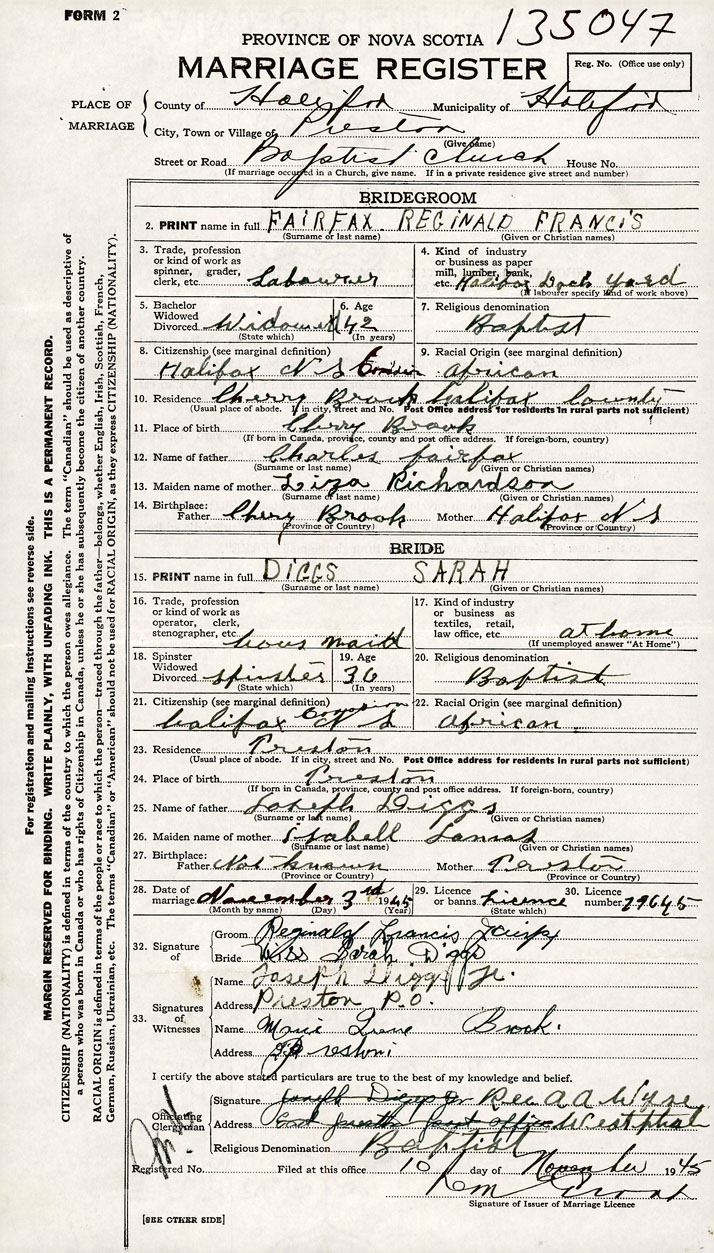 FORM 2
135047
PROVINCE OF NOVA SCOTIA
MARRIAGE REGISTER
Reg. No. (Office use only)
PLACE OF MARRIAGE
County of Halifax Municipality of Halifax
City, Town or Village of Preston
(Give name)
Street or Road Baptist Church House No.
(If marriage occurred in a Church, give name. If in a private residence give street and number)
BRIDEGROOM
2. PRINT name in full FAIRFAX REGINALD FRANCIS
(Surname or last name) (Given or Christian names)
3. Trade, profession or kind of work as spinner, grader, clerk, etc. Labourer
4. Kind of industry or business as paper mill, lumber, bank, etc. Halifax Dock Yard
(If labourer specify kind of work above)
5. Bachelor Widowed Divorced Widower
(State which)
6. Age 42
(In years)
7. Religious denomination Baptist
8. Citizenship (see marginal definition) Halifax N S
9. Racial Origin (see marginal definition) African
10. Residence Cherry Brook Halifax County
(Usual place of abode. If in city, street and No. Post Office address for residents in rural parts not sufficient)
11. Place of birth Cherry Brook
(If born in Canada, province, county and post office address. If foreign-born, country)
12. Name of father Charles fairfax
(Surname or last name) (Given or Christian names)
13. Maiden name of mother Liza Richardson
(Surname or last name) (Given or Christian names)
14. Birthplace: Father Chery Brook Mother Halifax N S
(Province or Country) (Province or Country)
BRIDE
15. PRINT name in full DIGGS SARAH
(Surname or last name) (Given or Christian names)
16. Trade, profession or kind of work as operator, clerk, stenographer, etc. hous maid
17. Kind of industry or business as textiles, retail, law office, etc. at home
(If unemployed answer "At Home")
18. Spinster Widowed Divorced spinster
(State which)
19. Age 36
(In years)
20. Religious denomination Baptist
21. Citizenship (see marginal definition) halifax N S
22. Racial Origin (see marginal definition) African
23. Residence Preston
(Usual place of abode. If in city, street and No. Post Office address for residents in rural parts not sufficient)
24. Place of birth Preston
(If born in Canada, province, county and post office address. If foreign-born, country)
25. Name of father Joseph Diggs
(Surname or last name) (Given or Christian names)
26. Maiden name of mother Isabell
(Surname or last name) (Given or Christian names)
27. Birthplace: Father Not known Mother Preston
(Province or Country) (Province or Country)
28. Date of marriage November 3rd 1945
(Month by name) (Day) (Year)
29. Licence or banns. Licence
(State which)
30. Licence number 79645
32. Signature of
Groom Reginald Francis
Bride Miss Sarah Diggs
33. Signatures of Witnesses
Name Joseph Diggs Jr.
Address Preston P.O.
Name Brook.
Address Preston
I certify the above stated particulars are true to the best of my knowledge and belief.
Officiating Clergyman
Signature Joseph Diggs Jr Rev A A Wyne
Address East preston post office Westphal
Religious Denomination Baptist
Registered No. Filed at this office 10 day of November 1945
Signature of Issuer of Marriage Licence
[SEE OTHER SIDE]
For registration and mailing instructions see reverse side.
MARGIN RESERVED FOR BINDING. WRITE PLAINLY, WITH UNFADING INK. THIS IS A PERMANENT RECORD.
CITIZENSHIP (NATIONALITY) is defined in terms of the country to which the person owes allegiance. The term "Canadian" should be used as descriptive of
a person who was born in Canada or who has rights of Citizenship in Canada, unless he or she has subsequently become the citizen of another country.
RACIAL ORIGIN is defined in terms of the people or race to which the person—traced through the father—belongs, whether English, Irish, Scottish, French,
German, Russian, Ukrainian, etc. The terms "Canadian" or "American" should not be used for RACIAL ORIGIN, as they express CITIZENSHIP (NATIONALITY).